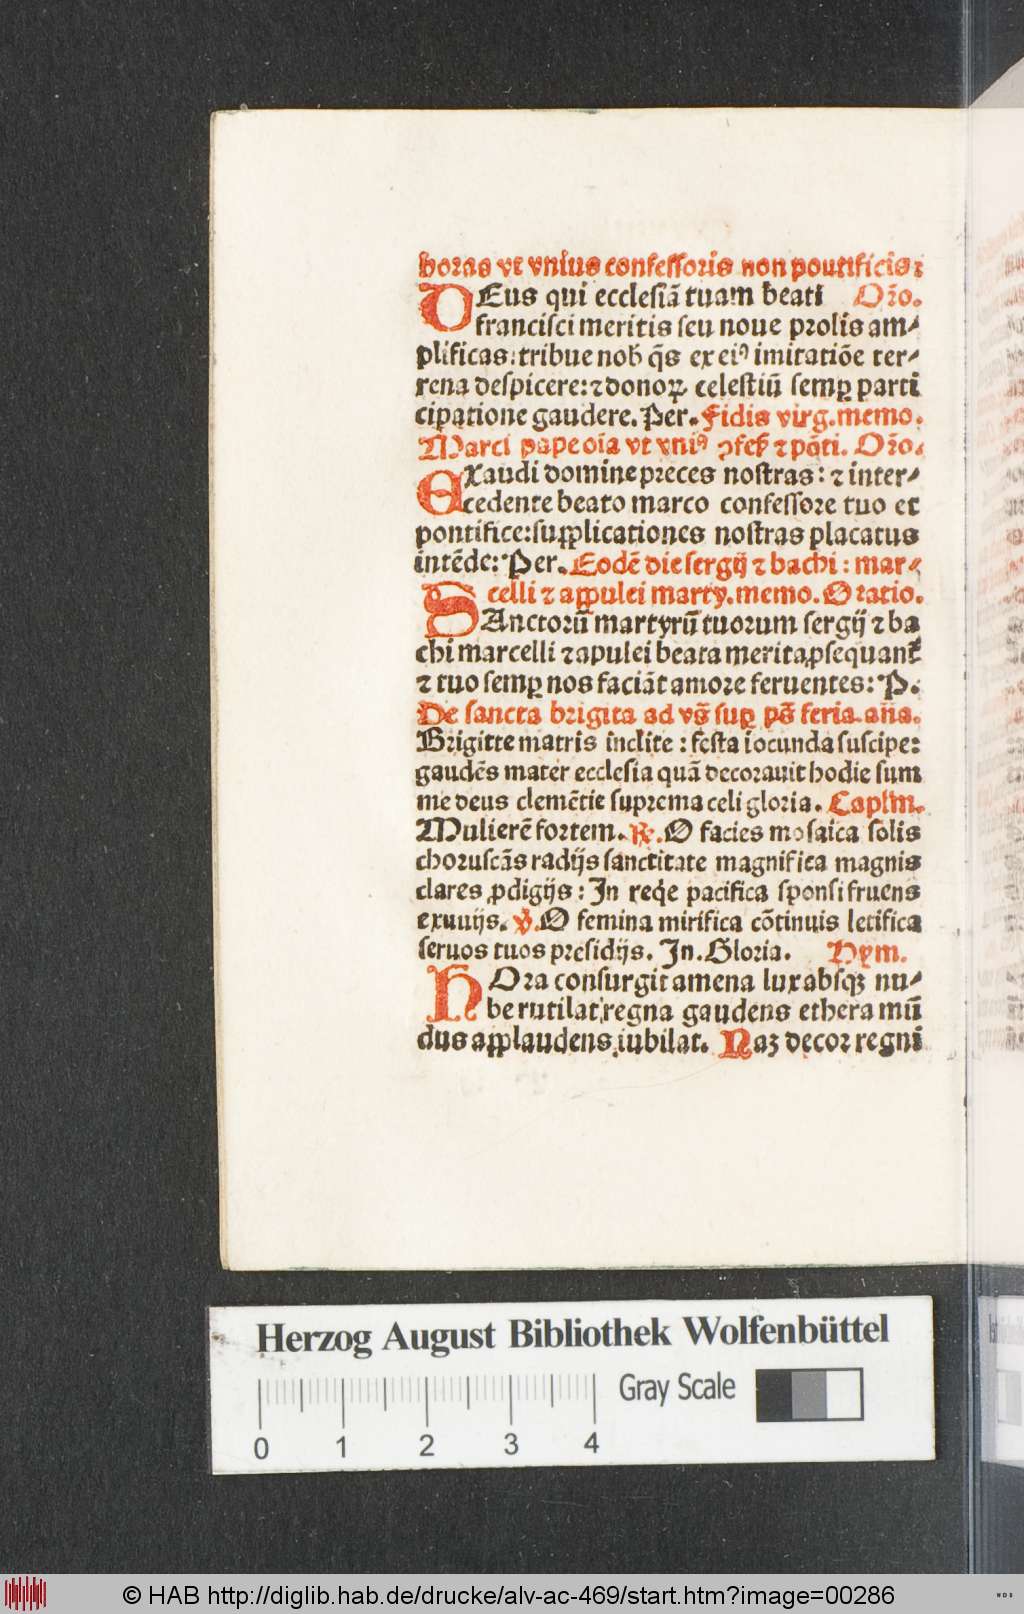 horas vt vnius confessoris non pontificis:
DEus qui ecclesiã tuam beati Orõ.
francisci meritis seu noue prolis am⸗
plificas: tribue nob̃ q̃s ex eiꝰ imitatiõe ter⸗
rena despicere: ⁊ donoꝝ celestiũ semꝑ parti
cipatione gaudere. Per. Fidis virg. memo.
Marci pape oĩa vt vniꝰ ꝯfes̃ ⁊ põti. Orõ.
EXaudi domine preces nostras: ⁊ inter⸗
cedente beato marco confessore tuo et
pontifice: supplicationes nostras placatus
intẽde: Per. Eodẽ die sergij ⁊ bachi: mar⸗
celli ⁊ appulei marty. memo. Oratio.
SAnctorũ martyrũ tuorum sergij ⁊ ba
chi marcelli ⁊ apulei beata merita ꝓsequant᷑
⁊ tuo semꝑ nos faciãt amore feruentes: P.
De sancta brigita ad vs̃ suꝑ ps̃ feria. aña.
Brigitte matris inclite: festa iocunda suscipe:
gaudẽs mater ecclesia quã decorauit hodie sum
me deus clemẽtie suprema celi gloria. Caplm̃.
Mulierẽ fortem. ℟. O facies mosaica solis
choruscãs radijs sanctitate magnifica magnis
clares ꝓdigijs: In reqͥe pacifica sponsi fruens
exuuijs. ℣. O femina mirifica cõtinuis letifica
seruos tuos presidijs. In. Gloria. Hym.
HOra consurgit amena lux absqꝫ nu⸗
be rutilat, regna gaudens ethera mũ
dus applaudens iubilat. Naꝫ decor regni
Herzog August Bibliothek Wolfenbüttel
Gray Scale
0 1 2 3 4
© HAB http://diglib.hab.de/drucke/alv-ac-469/start.htm?image=00286